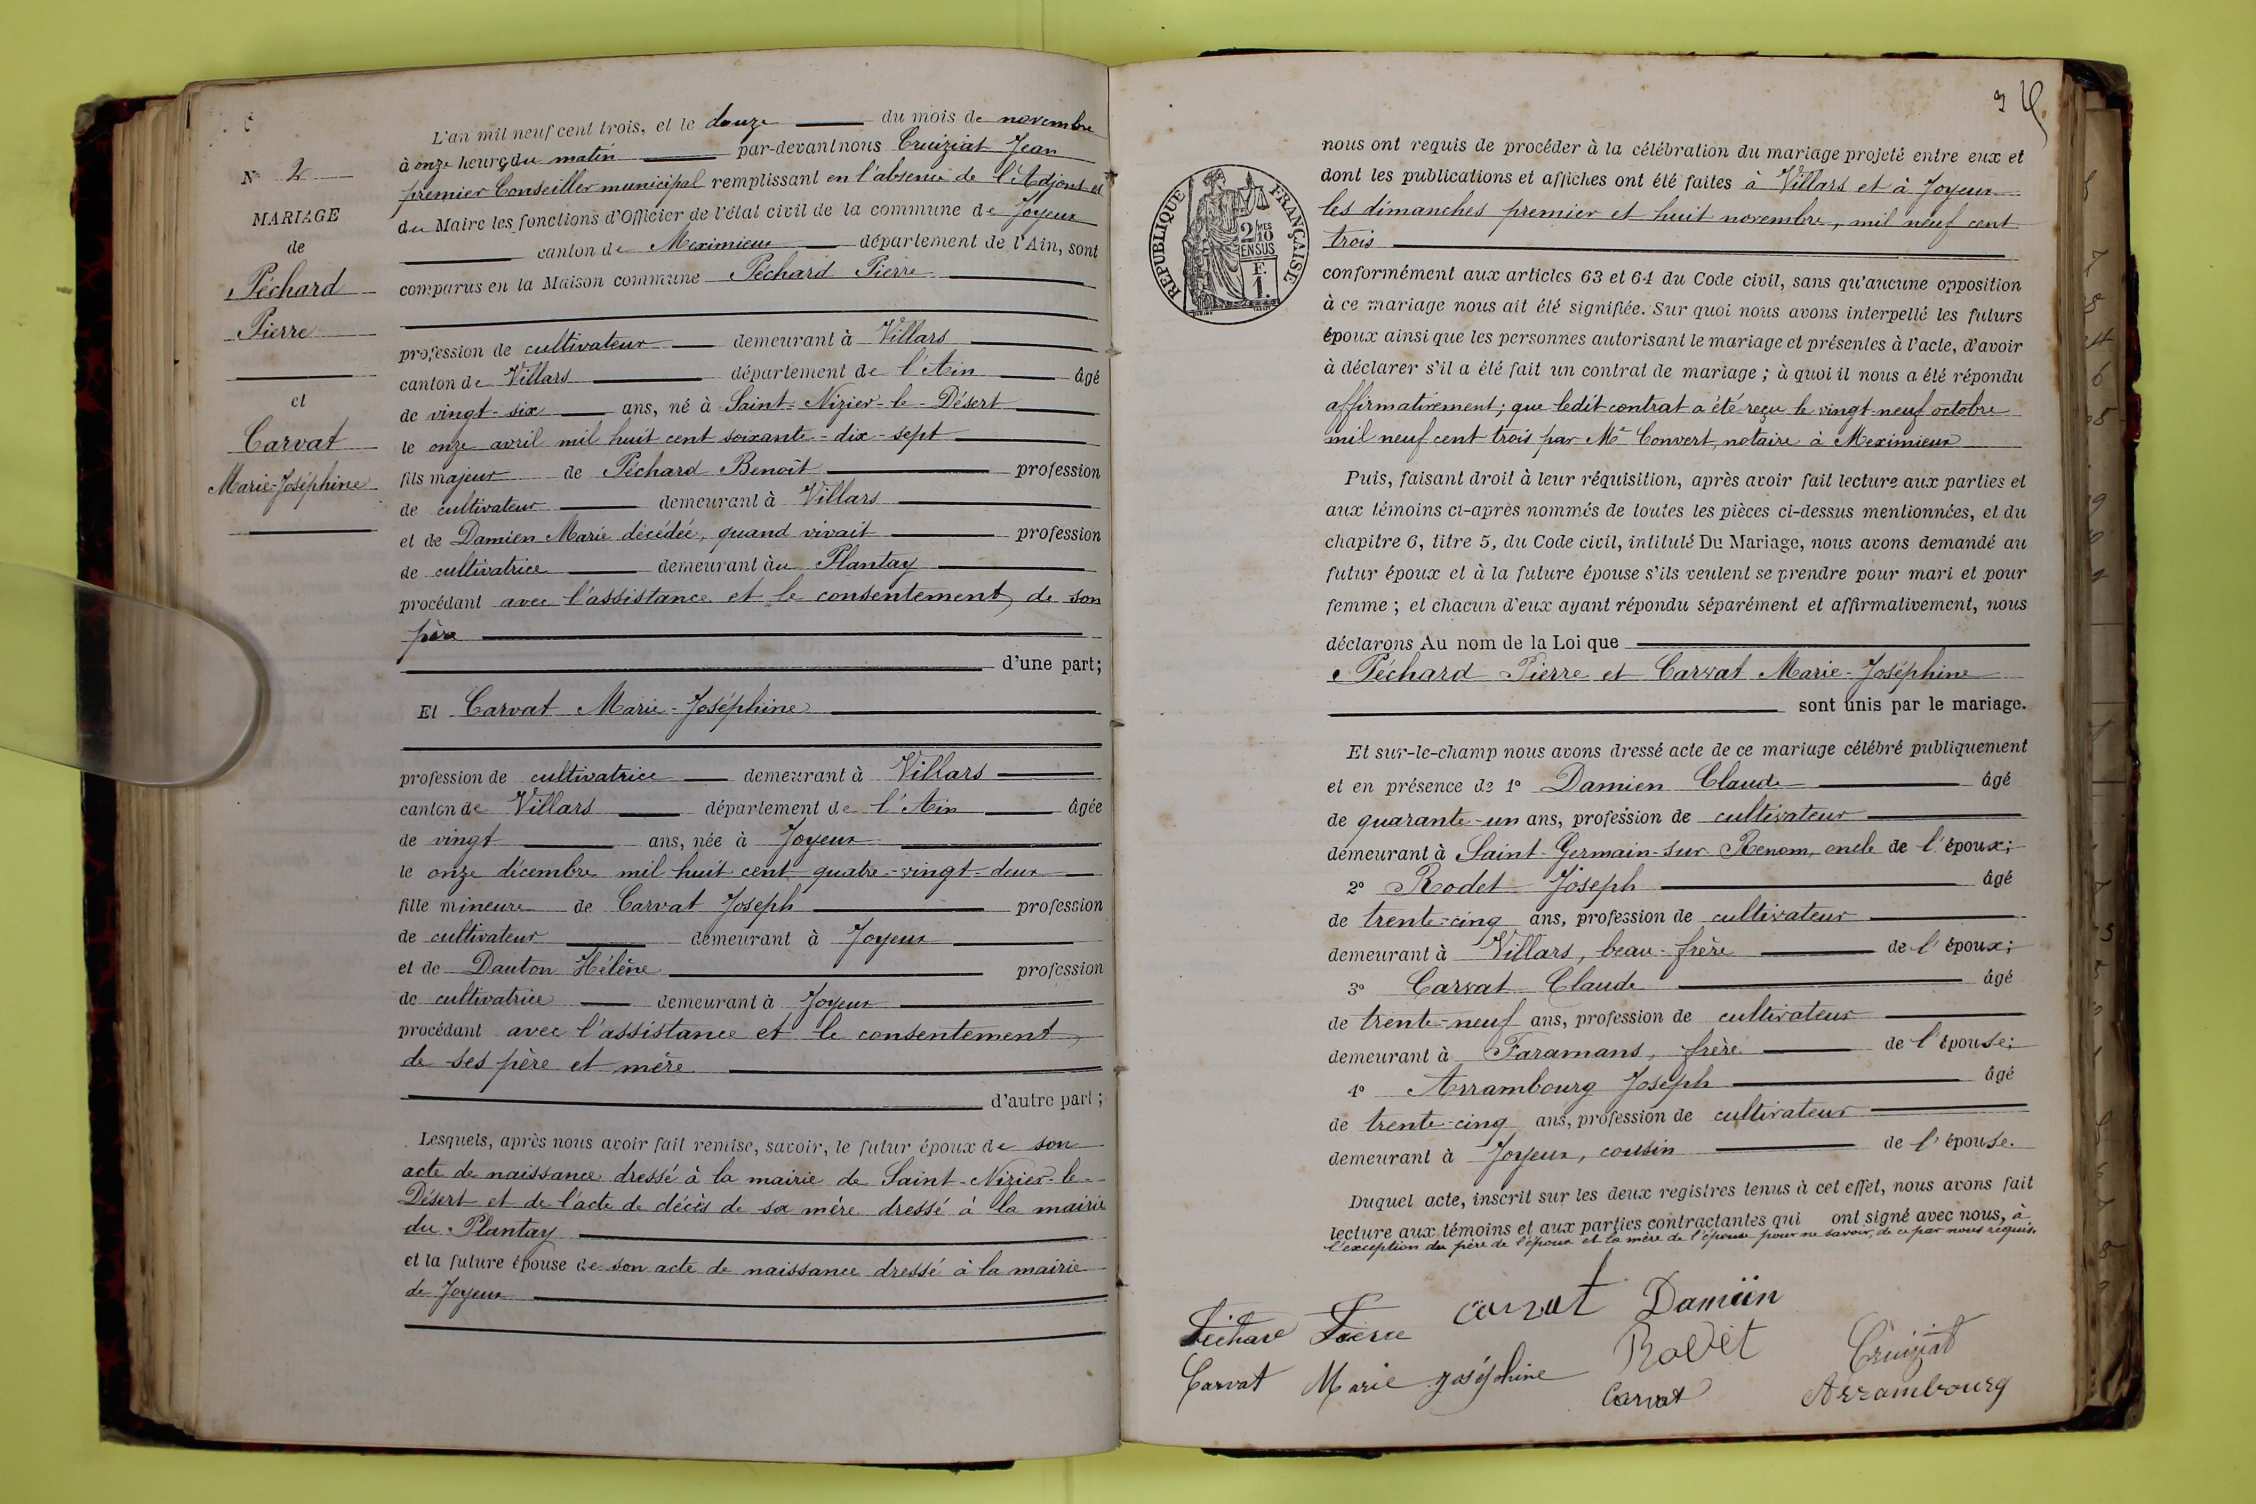 L'an mil neuf cent trois, et le douze du mois de novembre
à onze heures du matin par-devant nous Cruiziat Jean
premier Conseiller municipal remplissant en l'absence de l'Adjoint et
du Maire les fonctions d'Officier de l'état civil de la commune de Joyeux
canton de Meximieux département de l'Ain, sont
comparus en la Maison commune Péchard Pierre
profession de cultivateur demeurant à Villars
canton de Villars département de l'Ain âgé
de vingt-six ans, né à Saint-Nizier-le-Désert
le onze avril mil huit cent soixante-dix-sept
fils majeur de Péchard Benoît profession
de cultivateur demeurant à Villars
et de Damien Marie décédée, quand vivait profession
de cultivatrice demeurant au Plantay
procédant avec l'assistance et le consentement de son
père
d'une part;
Et Carvat Marie-Joséphine
profession de cultivatrice demeurant à Villars
canton de Villars département de l'Ain âgée
de vingt ans, née à Joyeux
le onze décembre mil huit cent quatre-vingt-deux
fille mineure de Carvat Joseph profession
de cultivateur demeurant à Joyeux
et de Dauton Hélène profession
de cultivatrice demeurant à Joyeux
procédant avec l'assistance et le consentement
de ses père et mère
d'autre part;
Lesquels, après nous avoir fait remise, savoir, le futur époux de son
acte de naissance dressé à la mairie de Saint-Nizier-le-
Désert et de l'acte de décès de sa mère dressé à la mairie
du Plantay
et la future épouse de son acte de naissance dressé à la mairie
de Joyeux
N° 2
MARIAGE
de
Péchard
Pierre
et
Carvat
Marie-Joséphine
nous ont requis de procéder à la célébration du mariage projeté entre eux et
dont les publications et affiches ont été faites à Villars et à Joyeux
les dimanches premier et huit novembre, mil neuf cent
trois
conformément aux articles 63 et 64 du Code civil, sans qu'aucune opposition
à ce mariage nous ait été signifiée. Sur quoi nous avons interpellé les futurs
époux ainsi que les personnes autorisant le mariage et présentes à l'acte, d'avoir
à déclarer s'il a été fait un contrat de mariage; à quoi il nous a été répondu
affirmativement; que ledit contrat a été reçu le vingt-neuf octobre
mil neuf cent trois par Me Convert, notaire à Meximieux
Puis, faisant droit à leur réquisition, après avoir fait lecture aux parties et
aux témoins ci-après nommés de toutes les pièces ci-dessus mentionnées, et du
chapitre 6, titre 5, du Code civil, intitulé Du Mariage, nous avons demandé au
futur époux et à la future épouse s'ils veulent se prendre pour mari et pour
femme; et chacun d'eux ayant répondu séparément et affirmativement, nous
déclarons Au nom de la Loi que
Péchard Pierre et Carvat Marie-Joséphine
sont unis par le mariage.
Et sur-le-champ nous avons dressé acte de ce mariage célébré publiquement
et en présence de 1° Damien Claude âgé
de quarante-un ans, profession de cultivateur
demeurant à Saint-Germain-sur-Renom, oncle de l'époux;
2° Rodet Joseph âgé
de trente-cinq ans, profession de cultivateur
demeurant à Villars, beau-frère de l'époux;
3° Carvat Claude âgé
de trente-neuf ans, profession de cultivateur
demeurant à Faramans, frère de l'épouse;
4° Arrambourg Joseph âgé
de trente-cinq ans, profession de cultivateur
demeurant à Joyeux, cousin de l'épouse.
Duquel acte, inscrit sur les deux registres tenus à cet effet, nous avons fait
lecture aux témoins et aux parties contractantes qui ont signé avec nous, à
l'exception du père de l'époux et la mère de l'épouse pour ne savoir, de ce par nous requis.
Péchard Pierre carvat Damiin
Carvat Marie joséphine Rodet Cruiziat
Carvat Arrambourg
RÉPUBLIQUE FRANÇAISE
2/10 MES
EN SUS
F.
1.